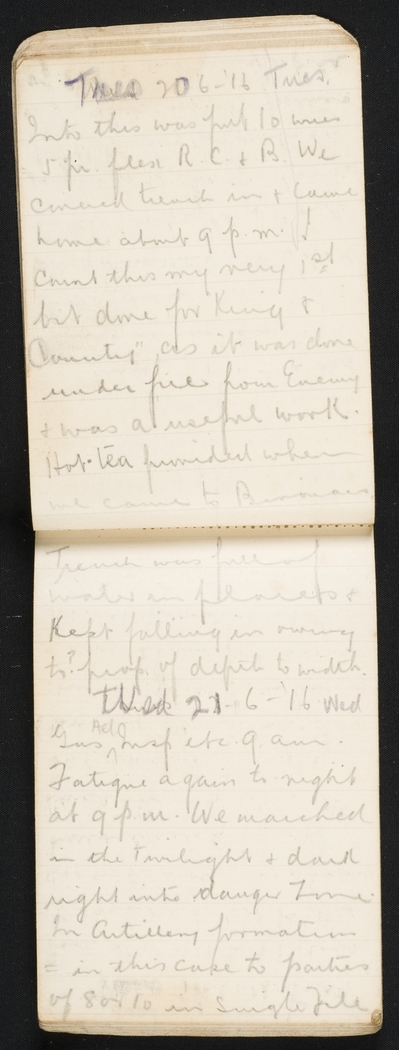 20 6-'16 Tues.
Into this was put 10 wires
5 pr. flex R. C. & B. We
covered trench in & came
home about 9 p.m. I
count this my very 1st
bit done for "King &
Country" as it was done
under fire from Enemy
& was a useful work.
Hot tea provided when
we came to
Trench was full of
water in places &
Kept falling in owing
to? prop. of depth to width.
21-6-'16 Wed
Gas Insp etc. 9 am.
Fatigue again to night
at 9 p.m. We marched
in the Twilight & dark
right into danger Zone.
In Artillery formation
= in this case to parties
of 8 or 10 in Single File